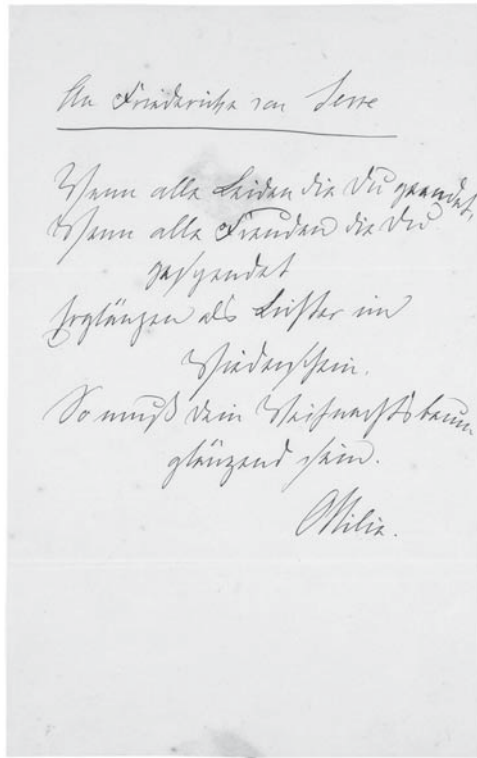 An Friederike von Serre
Wenn alle Leiden die Du geendet,
Wenn alle Freuden die Du
gespendet
Erglänzen als Lichter im
Wiederschein.
So muß dein Weihnachtsbaum
glänzend sein.
Ottilie.